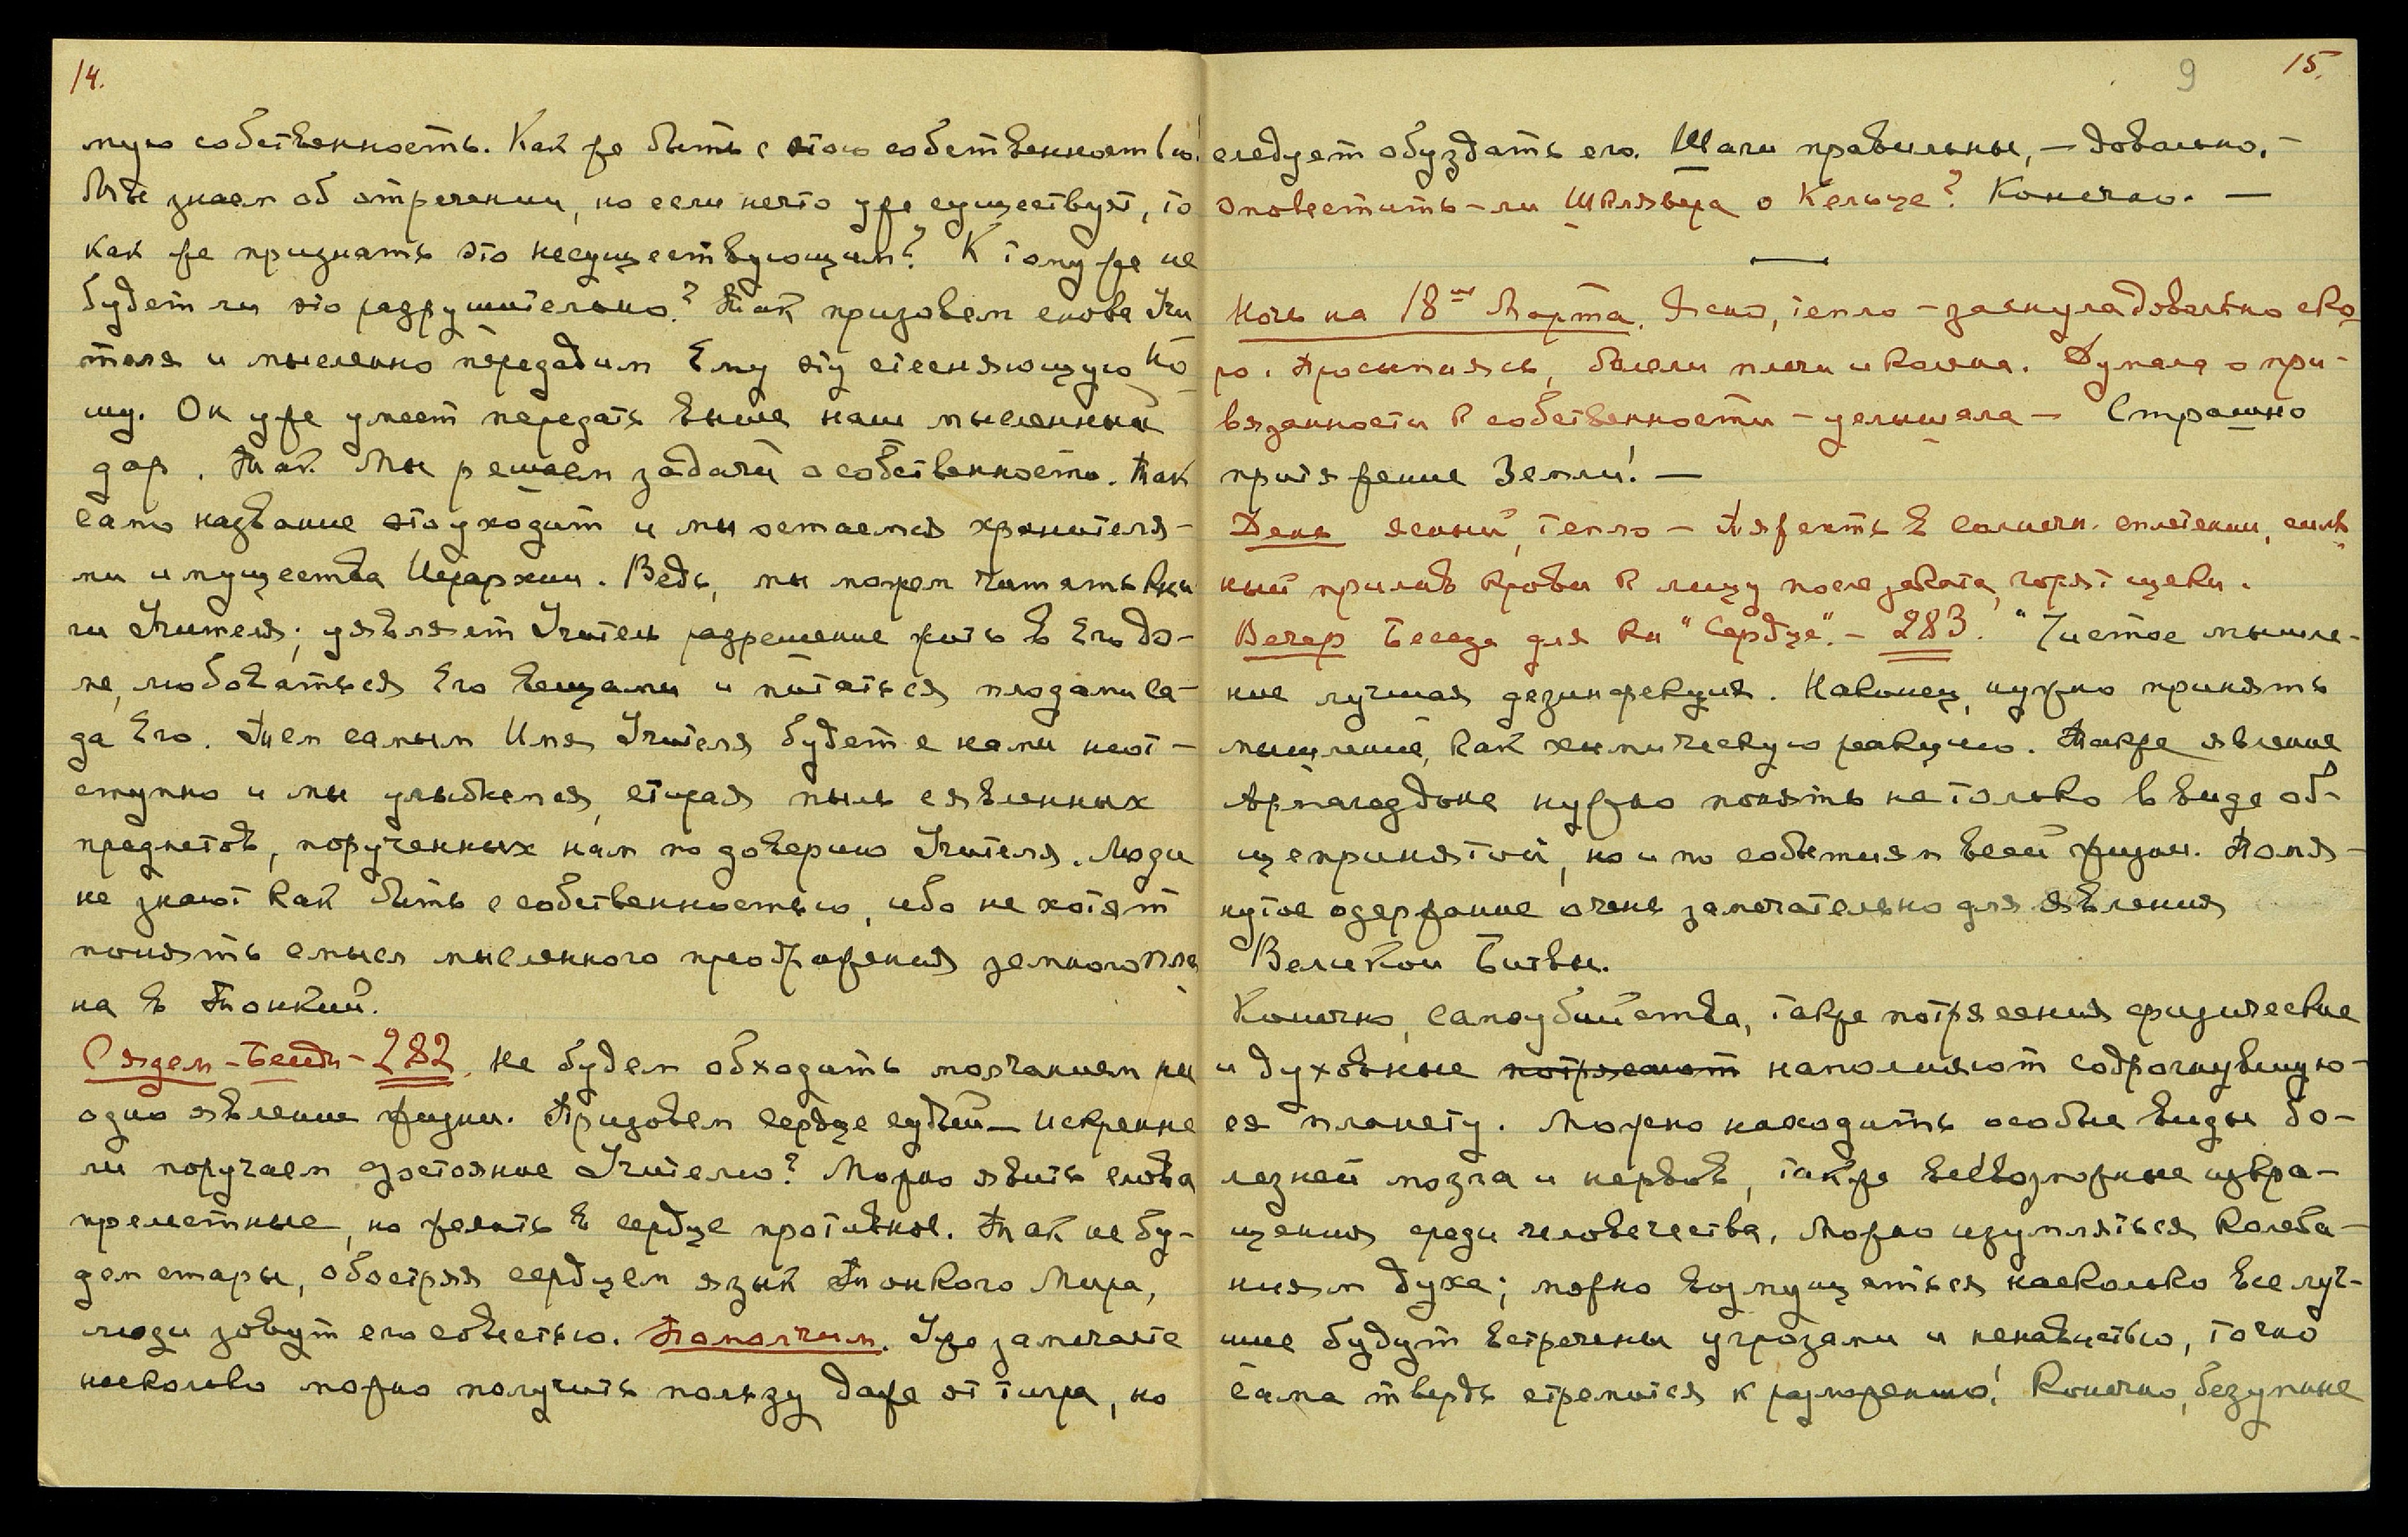 14.
мую собственность. Как же быть с этою собственностью?
Мы знаем об отречении, но если нечто уже существует, то
как же признать это несуществующим? К тому же не
будет ли это разрушительно? Так призовем снова Учи
теля и мысленно передадим Ему эту стесняющую но-
шу. Он уже умеет передать выше наш мысленный
дар. Так Мы решаем задачу о собственности. Так
само название это уходит и мы остаемся хранителя-
ми имущества Иерархии. Ведь, мы можем читать кни
ги Учителя; уявляет Учитель разрешение жить в Его до-
ме, любоваться Его вещами и питаться плодами са-
да Его. Тем самым Имя Учителя будет с нами неот-
ступно и мы улыбнемся, стирая пыль с явленных
предметов, порученных нам по доверию Учителя. Люди
не знают как быть с собственностью, ибо не хотят
понять смысл мысленного преображения земного пла
на в Тонкий.
Сядем-Беседа-282. Не будем обходить молчанием ни
одно явление жизни. Призовем сердце судьей - искренне
ли поручаем достояние Учителю? Можно явить слова
прелестные, но жечь в сердце противное. Так не бу-
дем стары, обостряя сердцем язык Тонкого Мира,
люди зовут его совестью. Помолчим. Уже замечаете
насколько можно получить пользу даже от тигра, но
9
15.
следует обуздать его. Шаги правильны, - довольно. -
Оповестить-ли Шклявера о Кельце? Конечно. -
Ночь на 18ое Марта. Ясно, тепло - заснула довольно ско-
ро. Просыпаясь, болели плечи и колена. Думала о при-
вязанности к собственности - услышала - Страшно
притяжение Земли! -
День ясный, тепло - Тяжесть в солнечн. сплетении, силь
ный прилив крови к лицу после заката, горят щеки.
Вечер Беседа для кн "Сердце". - 283. "Чистое мышле-
ние лучшая дезинфекция. Наконец, нужно принять
мышление, как химическую реакцию. Также явление
Армагеддона нужно понять не только в виде об-
щепринятой, но и по событиям всей жизни. Помя-
нутое одержание очень замечательно для явления
Великой Битвы.
Конечно, самоубийства, также потрясения физические
и духовные потрясают наполняют содрогнувшую-
ся планету. Можно находить особые виды бо-
лезней мозга и нервов, также всевозможные извра-
щения среди человечества, можно изумляться колеба-
ниям духа; можно возмущаться насколько все луч-
шие будут встречены угрозами и ненавистью, точно
сама твердь стремится к разможению! Конечно, безумные